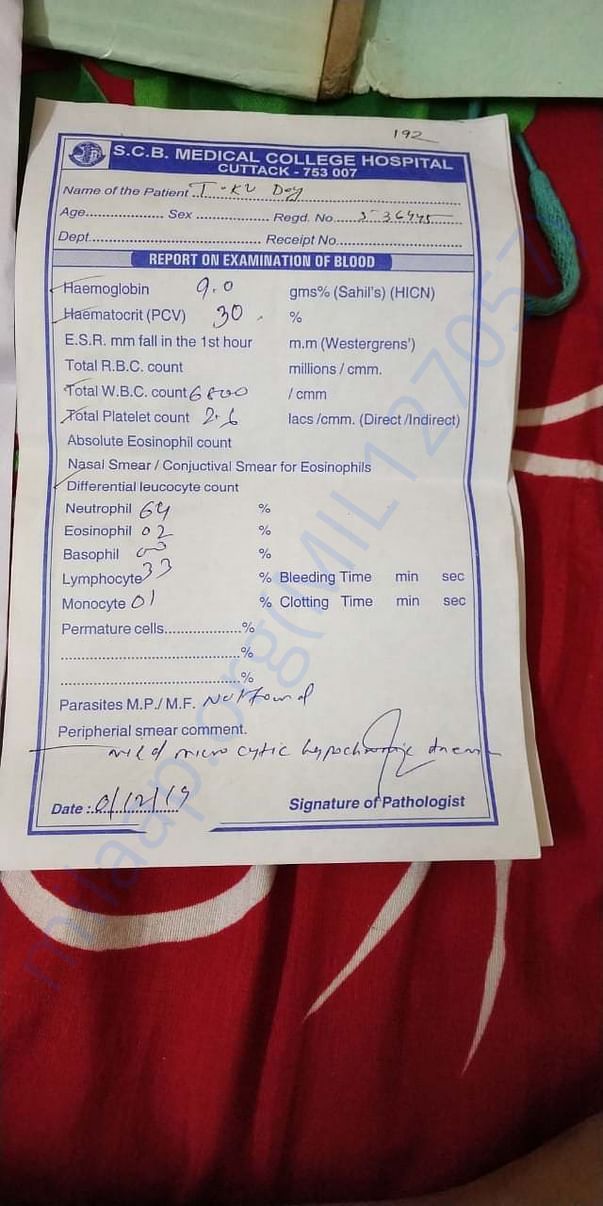 192
S.C.B. MEDICAL COLLEGE HOSPITAL
CUTTACK - 753 007
Name of the Patient T. KU Dey
Age.................. Sex .................. Regd. No.
Dept.................. Receipt No..................
REPORT ON EXAMINATION OF BLOOD
Haemoglobin 9.0 gms% (Sahil's) (HICN)
Haematocrit (PCV) 30 %
E.S.R. mm fall in the 1st hour m.m (Westergrens')
Total R.B.C. count millions / cmm.
Total W.B.C. count 6800 / cmm
Total Platelet count 2.6 lacs /cmm. (Direct /Indirect)
Absolute Eosinophil count
Nasal Smear / Conjuctival Smear for Eosinophils
Differential leucocyte count
Neutrophil 64 %
Eosinophil 02 %
Basophil 00 %
Lymphocyte 33 % Bleeding Time min sec
Monocyte 01 % Clotting Time min sec
Permature cells..................%
..................%
..................%
Parasites M.P./ M.F. Not found
Peripherial smear comment.
mild microcytic hypochromic
Date : /12/19 Signature of Pathologist
milaap.org(MIL127057